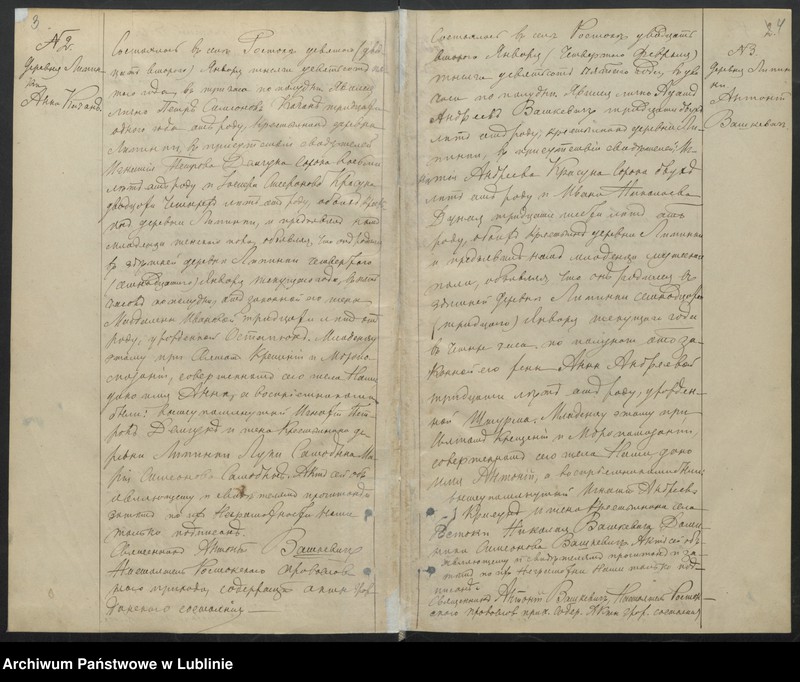 3
№ 2.
Деревня Липин-
ки
Анна Качанъ
Состоялось въ селѣ Ростокъ девятаго (двад-
цать втораго) Января тысяча девятьсотъ пя-
таго года, въ три часа по полудни. Явился
лично Петръ Симеоновъ Качанъ тридцати
одного года отъ роду, крестьянинъ деревни
Липинки, въ присутствіи свидѣтелей
Игнатія Петрова сорока восьми
лѣтъ отъ роду и Красуна
двадцати четырехъ лѣтъ отъ роду, обоихъ крестьянъ
деревни Липинки, и предъявилъ намъ
младенца женскаго пола, объявляя, что онъ родился
въ здѣшней деревни Липинки четвертаго
(семнадцатаго) Января текущаго года, въ
часовъ по полудни, отъ законной его жены
Ивановой тридцати лѣтъ отъ
роду, урожденной Младенцу
этому при Святомъ Крещеніи и Мѵропо-
мазаніи, совершенномъ сего числа Нами
дано имя Анна, а воспріемниками
были: вышеупомянутый Игнатій Пет-
ровъ и жена крестьянина де-
ревни Липинки Луки Ма-
рія Симеонова Актъ сей объ-
являющему и свидѣтелямъ прочитанъ,
затѣмъ по ихъ неграмотности Нами
только подписанъ.
Священникъ Антоній Вашкевичъ
Настоятель Ростокскаго православ-
наго прихода, содержащій акты граж-
данскаго состоянія
24
№ 3.
Деревня Липин-
ки
Антоній
Вашкевичъ
Состоялось въ селѣ Ростокъ двадцать
втораго Января (Четвертаго Февраля)
тысяча девятьсотъ пятаго года, въ два
часа по полудни. Явился лично Адамъ
Андреевъ Вашкевичъ тридцати двухъ
лѣтъ отъ роду, крестьянинъ деревни Ли-
пинки, въ присутствіи свидѣтелей, Иг-
натія Андреева Красуна сорока двухъ
лѣтъ отъ роду и Ивана Николаева
тридцати шести лѣтъ отъ
роду, обоихъ крестьянъ деревни Липинки
и предъявилъ намъ младенца мужескаго
пола, объявляя что онъ родился въ
здѣшней деревни Липинки семнадцатаго
(тридцатаго) Января текущаго года
въ четыре часа по полудни отъ за-
конной его жены Анны Андреевой
тридцати лѣтъ отъ роду, урожден-
ной Младенцу этому при
Святомъ Крещеніи и Мѵропомазаніи,
совершенномъ сего числа Нами дано
имя Антоній, а воспріемниками были:
вышеупомянутый Игнатій Андреевъ
Красунъ и жена крестьянина села
Ростокъ Николая Вашкевича Доми-
ника Симеонова Вашкевичъ. Актъ сей объ-
являющему и свидѣтелямъ прочитанъ и за-
тѣмъ по ихъ неграмотности Нами только под-
писанъ.
Священникъ Антоній Вашкевичъ, Настоятель Росток-
скаго православ. прих. содер. Акты граж. состоянія
Archiwum Państwowe w Lublinie